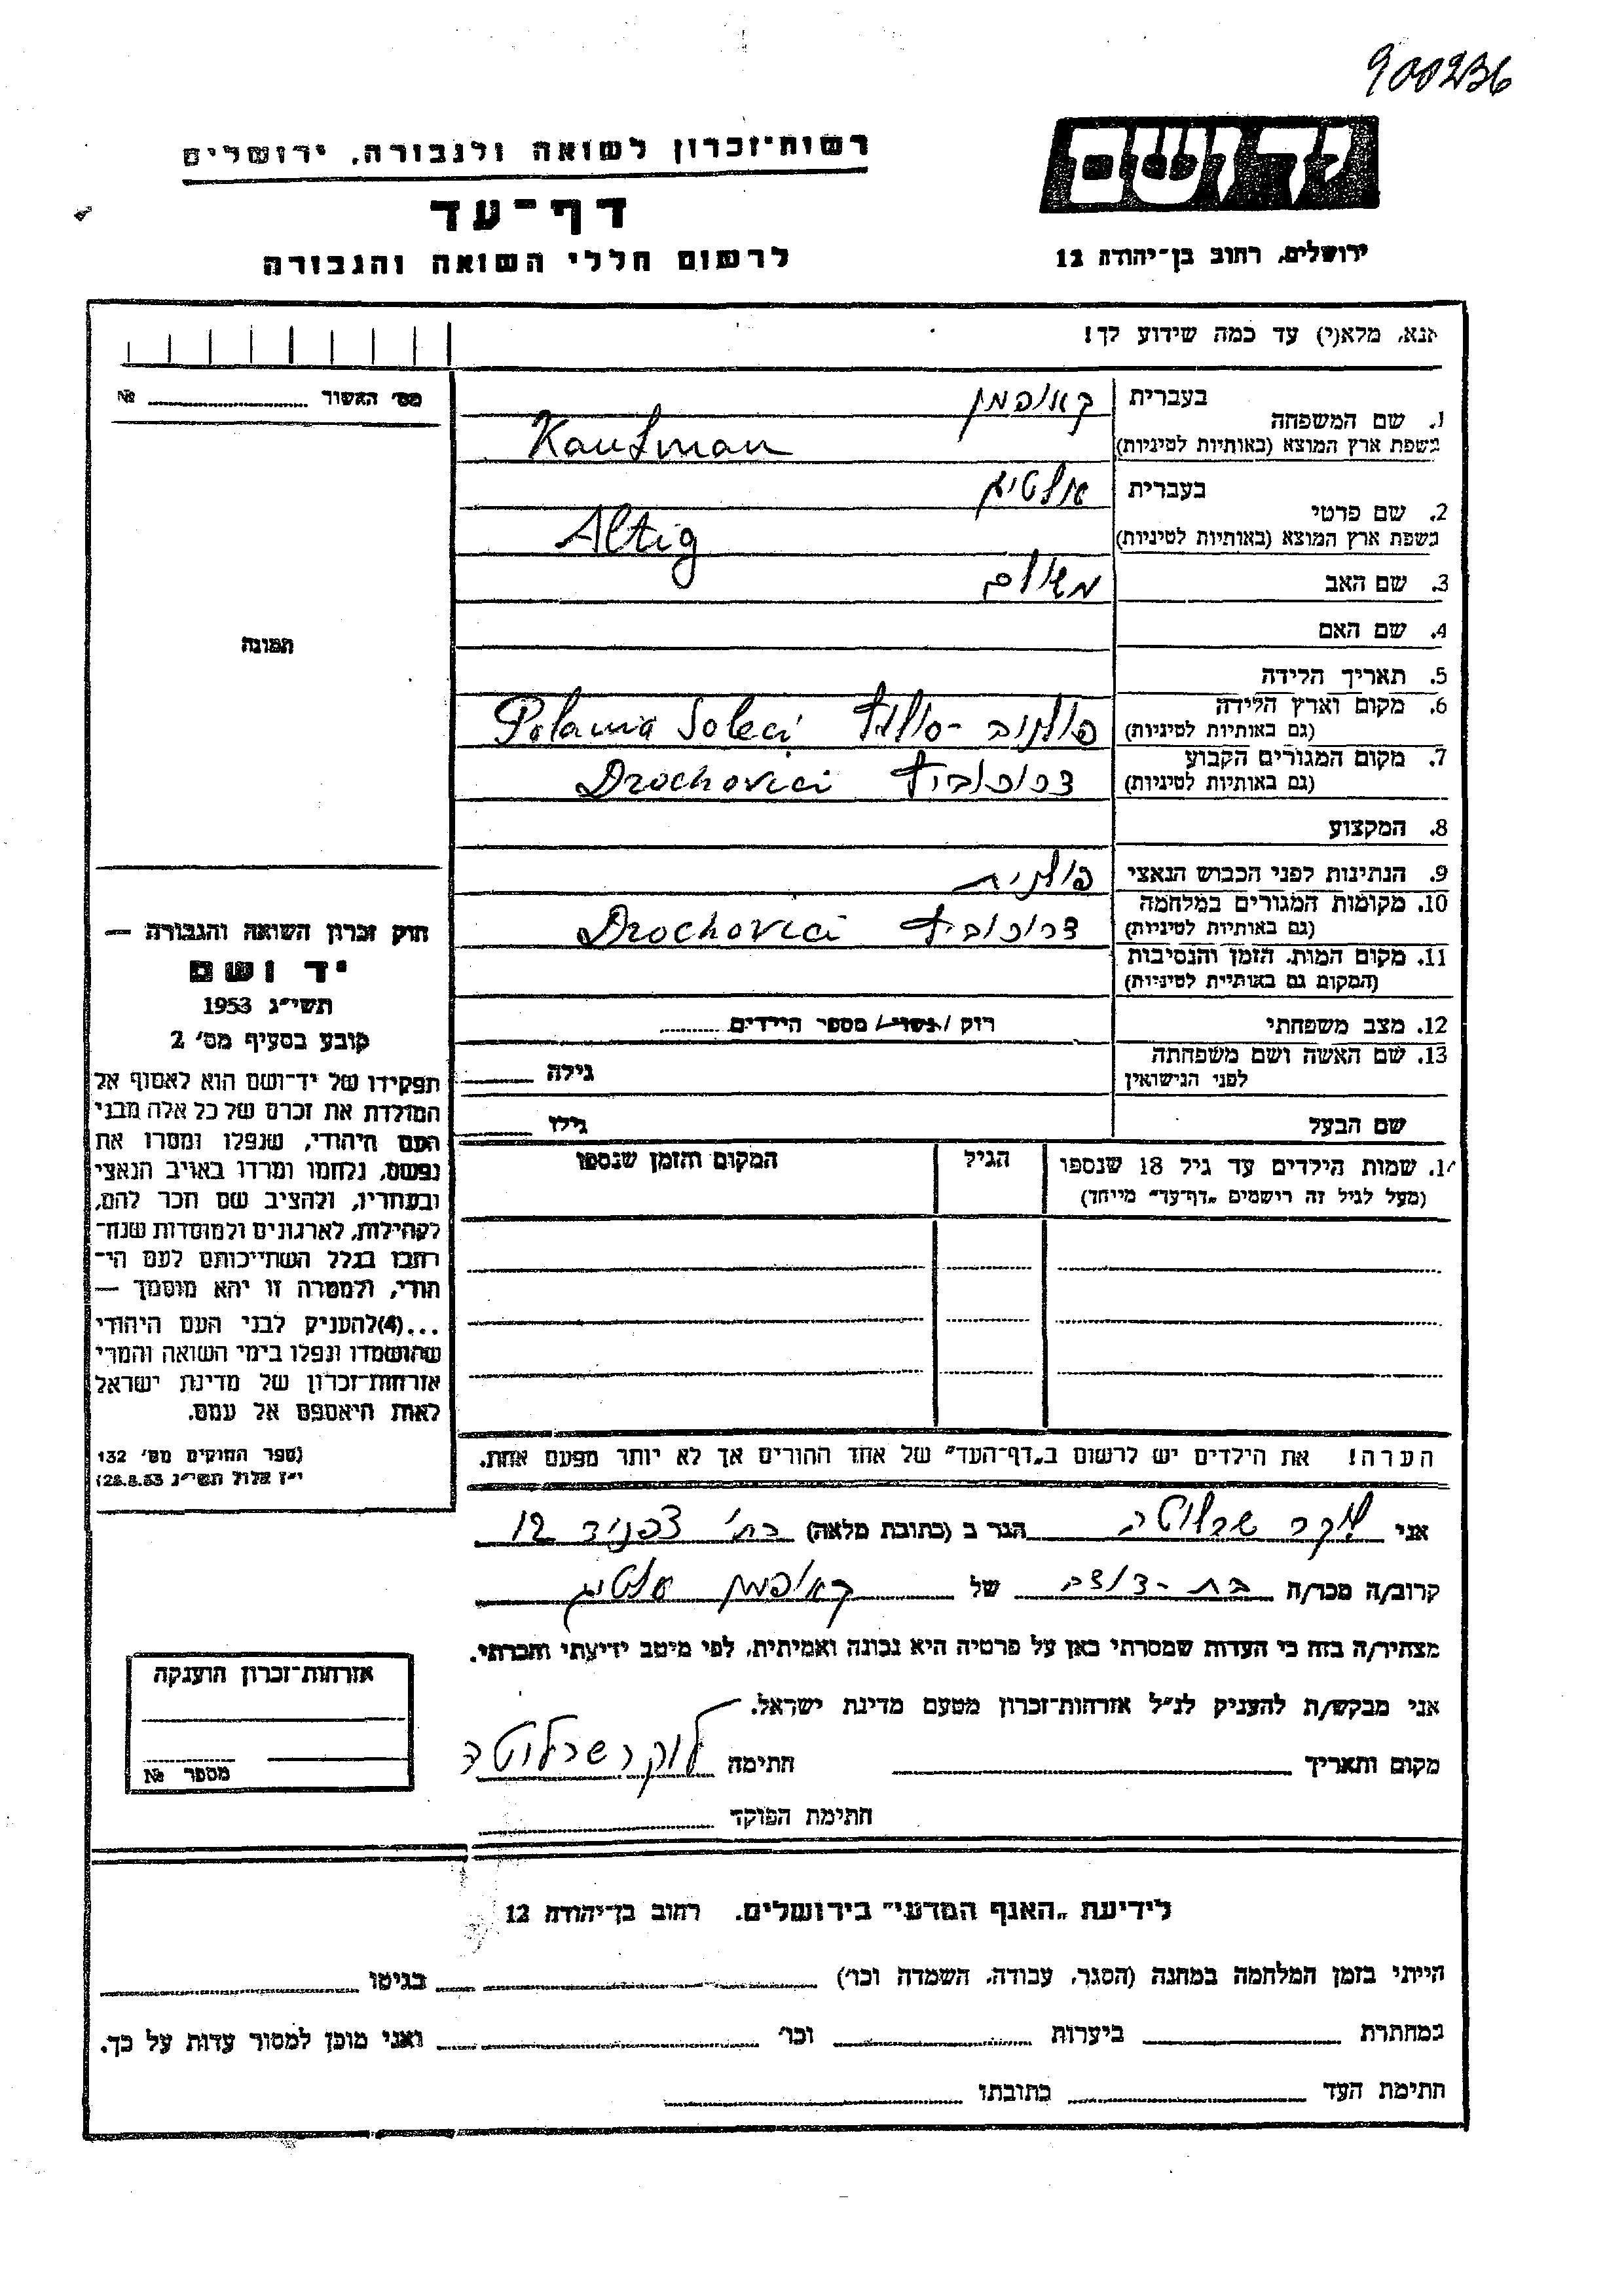 900236
יד ושם
רשות־זכרון לשואה ולגבורה, ירושלים
דף־עד
לרשום חללי השואה והגבורה
ירושלים, רחוב בן־יהודה 12
אנא, מלא(י) עד כמה שידוע לך!
מס׳ האשור № 
1. שם המשפחה בעברית קאופמן
בשפת ארץ המוצא (באותיות לטיניות) Kaufman
2. שם פרטי בעברית אלטיג
בשפת ארץ המוצא (באותיות לטיניות) Altig
3. שם האב משולם
4. שם האם
5. תאריך הלידה
6. מקום וארץ הלידה
(גם באותיות לטיניות) Soleci
7. מקום המגורים הקבוע
(גם באותיות לטיניות) דרוכוביץ Drochovici
8. המקצוע
9. הנתינות לפני הכבוש הנאצי פולנית
10. מקומות המגורים במלחמה
(גם באותיות לטיניות) דרוכוביץ Drochovici
11. מקום המות, הזמן והנסיבות
(המקום גם באותיית לטיניות)
12. מצב משפחתי רוק / נשוי / מספר הילדים
13. שם האשה ושם משפחתה
לפני הנישואין גילה
שם הבעל גילו
14. שמות הילדים עד גיל 18 שנספו הגיל המקום והזמן שנספו
(מעל לגיל זה רישמים „דף־עד״ מייחד)
תמונה
חוק זכרון השואה והגבורה —
יד ושם
תשי״ג 1953
קובע בסעיף מס׳ 2
תפקידו של יד־ושם הוא לאסוף אל
המולדת את זכרם של כל אלה מבני
העם היהודי, שנפלו ומסרו את
נפשם, נלחמו ומרדו באויב הנאצי
ובעוזריו, ולהציב שם וזכר להם,
לקהילות, לארגונים ולמוסדות שנח־
רחבו בגלל השתייכותם לעם הי־
הודי, ולמטרה זו יהא מוסמך —
...(4)להעניק לבני העם היהודי
שהושמדו ונפלו בימי השואה והמרי
אזרחות־זכרון של מדינת ישראל
לאות היאספם אל עמם.
(ספר החוקים מס׳ 132
י״ז אלול תשי״ג 28.8.53)
הערה! את הילדים יש לרשום ב„דף־העד״ של אחד ההורים אך לא יותר מפעם אחת.
אני לוקר שרלוטה הגר ב (כתובת מלאה) 12
קרוב/ה מכר/ה בת-דודה של קאופמן אלטיג
מצהיר/ה בזה כי העדות שמסרתי כאן על פרטיה היא נכונה ואמיתית, לפי מיטב ידיעתי והכרתי.
אני מבקש/ת להעניק לנ״ל אזרחות־זכרון מטעם מדינת ישראל.
מקום ותאריך חתימה לוקר שרלוטה
חתימת הפוקד
אזרחות־זכרון הוענקה
מספר №
לידיעת „האגף המדעי״ בירושלים, רחוב בן־יהודה 12
הייתי בזמן המלחמה במחנה (הסגר, עבודה, השמדה וכו׳) בגיטו
במחתרת ביערות וכו׳ ואני מוכן למסור עדות על כך.
חתימת העד כתובתו